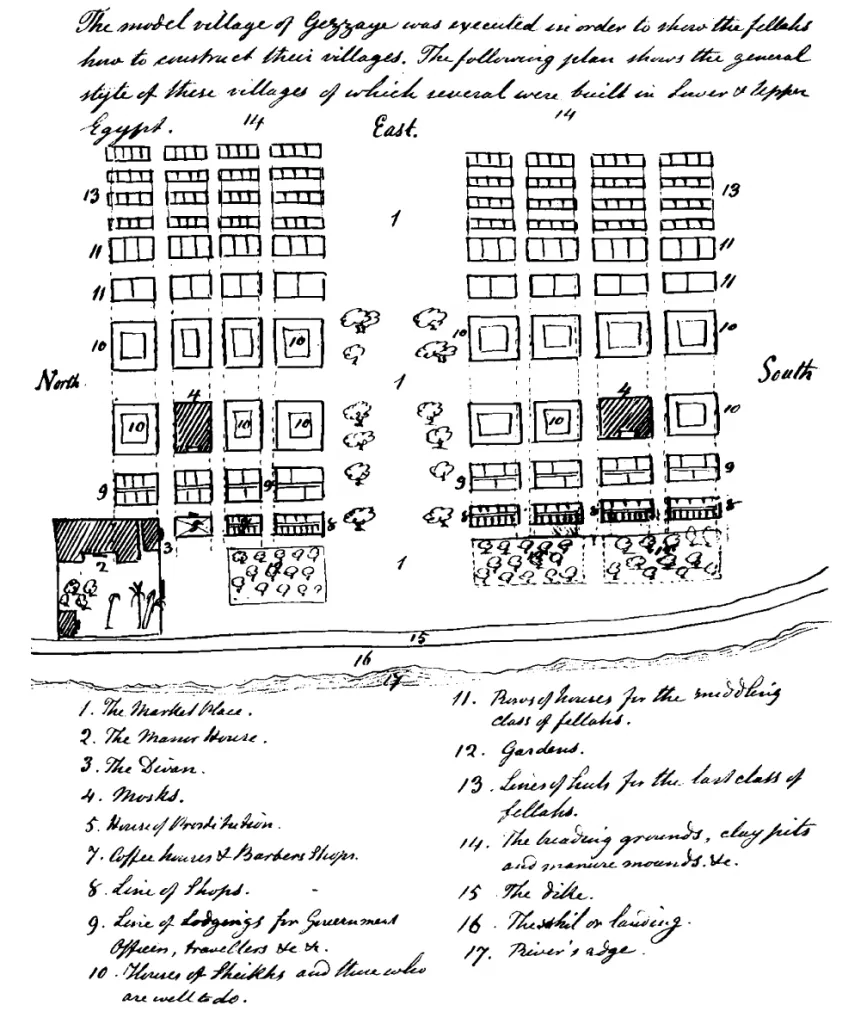 The model village of Gezzaye was executed in order to show the fellahs
how to construct their villages. The following plan shows the general
style of these villages of which several were built in Lower & Upper
Egypt.
14 East. 14
13 1 13
11 11
11 11
10 10 10 10
North 4 1 4 South
10 10 10 10 10
9 9 9 9
8 8 8 8
2 3 1
15
16
17
1. The Market Place.
2. The Manor House.
3. The Divan.
4. Mosks.
5. House of Prostitution.
7. Coffee houses & Barbers Shops.
8. Line of Shops.
9. Line of Lodgings for Government
Officers, travellers &c &c.
10. Houses of Sheikhs and those who
are well to do.
11. Rows of houses for the middling
class of fellahs.
12. Gardens.
13. Lines of huts for the last class of
fellahs.
14. The treading grounds, clay pits
and manure mounds. &c.
15 The dike.
16. The or landing.
17. River's edge.